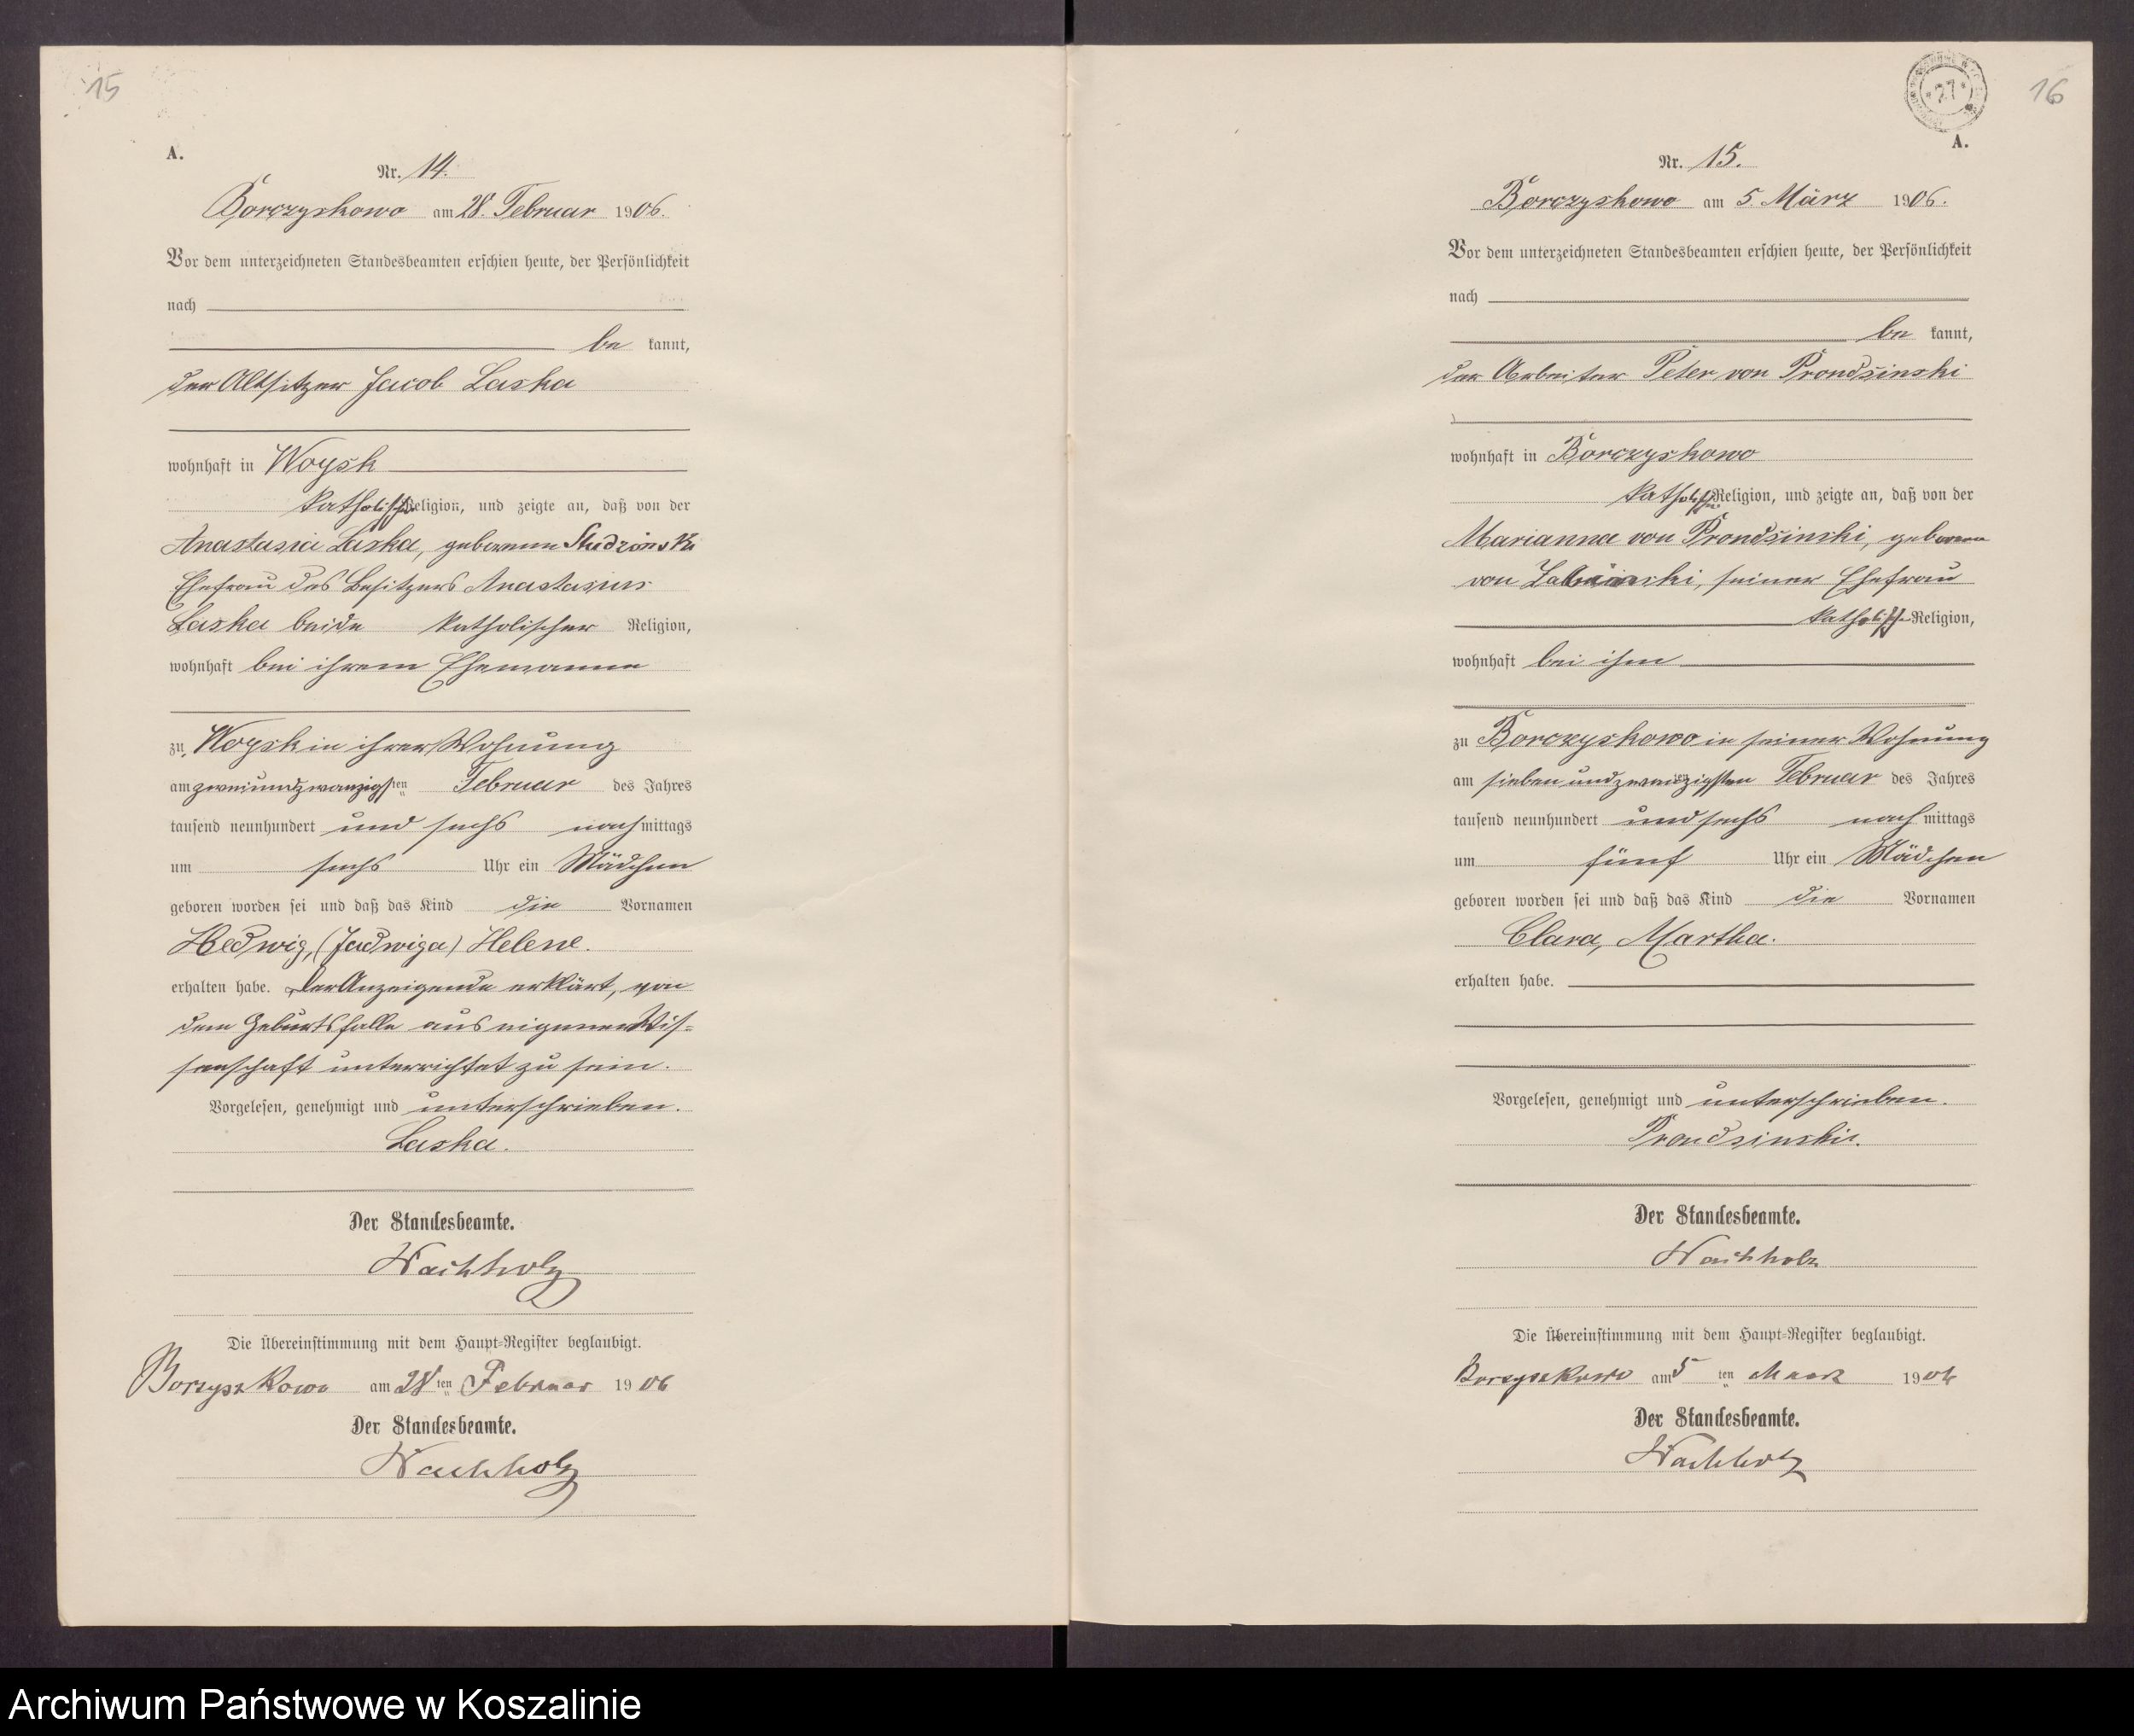 15
A.
Nr. 14.
Borczyskowo am 28. Februar 1906.
Vor dem unterzeichneten Standesbeamten erschien heute, der Persönlichkeit
nach
be kannt,
der Altsitzer Jacob Laska
wohnhaft in Woysk
katholischer Religion, und zeigte an, daß von der
Anastasia Laska, geborenen Studzinski
Ehefrau des Besitzers Anastasius
Laska beide katholischer Religion,
wohnhaft bei ihrem Ehemanne
zu Woysk in ihrer Wohnung
am zweiundzwanzigsten Februar des Jahres
tausend neunhundert und sechs nachmittags
um sechs Uhr ein Mädchen
geboren worden sei und daß das Kind die Vornamen
Hedwig, (Jadwiga) Helene.
erhalten habe. Der Anzeigende erklärt, von
dem Geburtsfalle aus eigener Wis-
senschaft unterrichtet zu sein.
Vorgelesen, genehmigt und unterschrieben.
Laska.
Der Standesbeamte.
Wachholz
Die Übereinstimmung mit dem Haupt-Register beglaubigt.
Borzyszkowo am 28ten Februar 1906
Der Standesbeamte.
Wachholz
27
16
A.
Nr. 15.
Borczyskowo am 5. März 1906.
Vor dem unterzeichneten Standesbeamten erschien heute, der Persönlichkeit
nach
be kannt,
der Arbeiter Peter von Prondzinski
wohnhaft in Borczyskowo
katholischer Religion, und zeigte an, daß von der
Marianna von Prondzinski, geborenen
von seiner Ehefrau
katholischer Religion,
wohnhaft bei ihm
zu Borczyskowo in seiner Wohnung
am siebenundzwanzigsten Februar des Jahres
tausend neunhundert und sechs nach mittags
um fünf Uhr ein Mädchen
geboren worden sei und daß das Kind die Vornamen
Clara, Martha.
erhalten habe.
Vorgelesen, genehmigt und unterschrieben.
Prondzinski.
Der Standesbeamte.
Wachholz
Die Übereinstimmung mit dem Haupt-Register beglaubigt.
Borzyszkowo am 5 ten Maerz 1906
Der Standesbeamte.
Wachholz
Archiwum Państwowe w Koszalinie